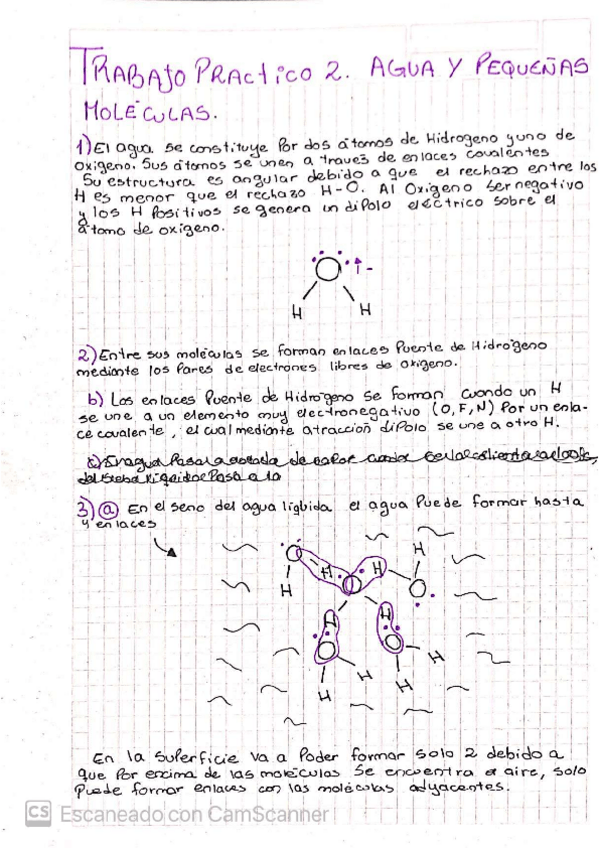 TRABAJO PRACTICO 2. AGUA Y PEQUEÑAS
MOLÉCULAS.
1) El agua se constituye Por dos átomos de Hidrogeno y uno de
oxigeno. Sus átomos se unen a traves de enlaces covalentes
Su estructura es angular debido a que el rechazo entre los
H es menor que el rechazo H-O. Al Oxigeno ser negativo
y los H Positivos se genera un dipolo eléctrico sobre el
átomo de oxígeno.
-
H H
2) Entre sus moléculas se forman enlaces Puente de Hidrógeno
mediante los Pares de electrones libres de oxigeno.
b) Los enlaces Puente de Hidrógeno se forman cuando un H
se une a un elemento muy electronegativo (O, F, N) Por un enla-
ce covalente, el cual mediante atracción dipolo se une a otro H.
c) El agua Pasa a estado de vapor cuando
Pasa a la
3) a) En el seno del agua líquida el agua Puede formar hasta
4 enlaces
H
H H
H
H H
H H
H H
En la superficie va a Poder formar solo 2 debido a
que Por encima de las moléculas se encuentra el aire, solo
Puede formar enlaces con las moléculas adyacentes.
CS Escaneado con CamScanner